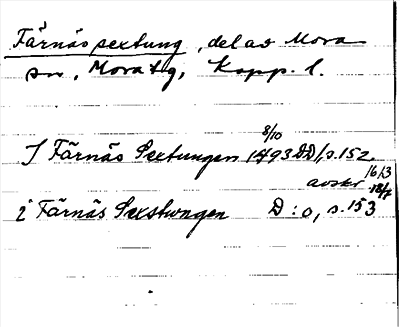 Färnäs sextung, del av Mora
sn, Mora tg, Kopp. l.
8/10
J Färnäs Sextungen 1493 DD1, s. 152.
avskr 16/3
i Färnäs Sexstwngen D:o, s. 153